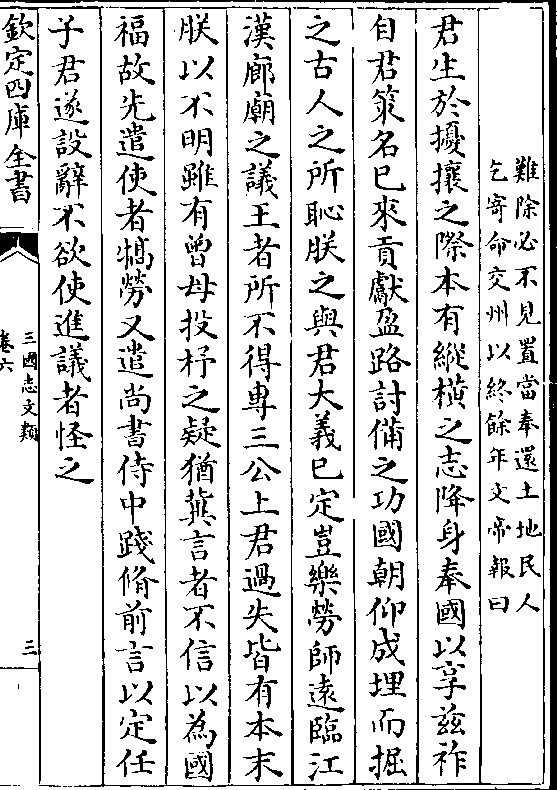 難除必不見置當奉還土地民人
乞寄命交州以終餘年文帝報曰
君生於擾攘之際本有縱橫之志降身奉國以享兹祚
自君䇿名已來貢獻盈路討備之功國朝仰成埋而掘
之古人之所恥朕之與君大義已定豈樂勞師遠臨江
漢廊廟之議王者所不得專三公上君過失皆有本末
朕以不明雖有曾母投杼之疑猶兾言者不信以為國
福故先遣使者犒勞又遣尚書侍中踐脩前言以定任
子君遂設辭不欲使進議者怪之
欽定四庫全書
三國志文類
卷六
三